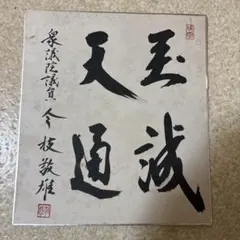 至誠
天通
衆議院議員 今枝敬雄